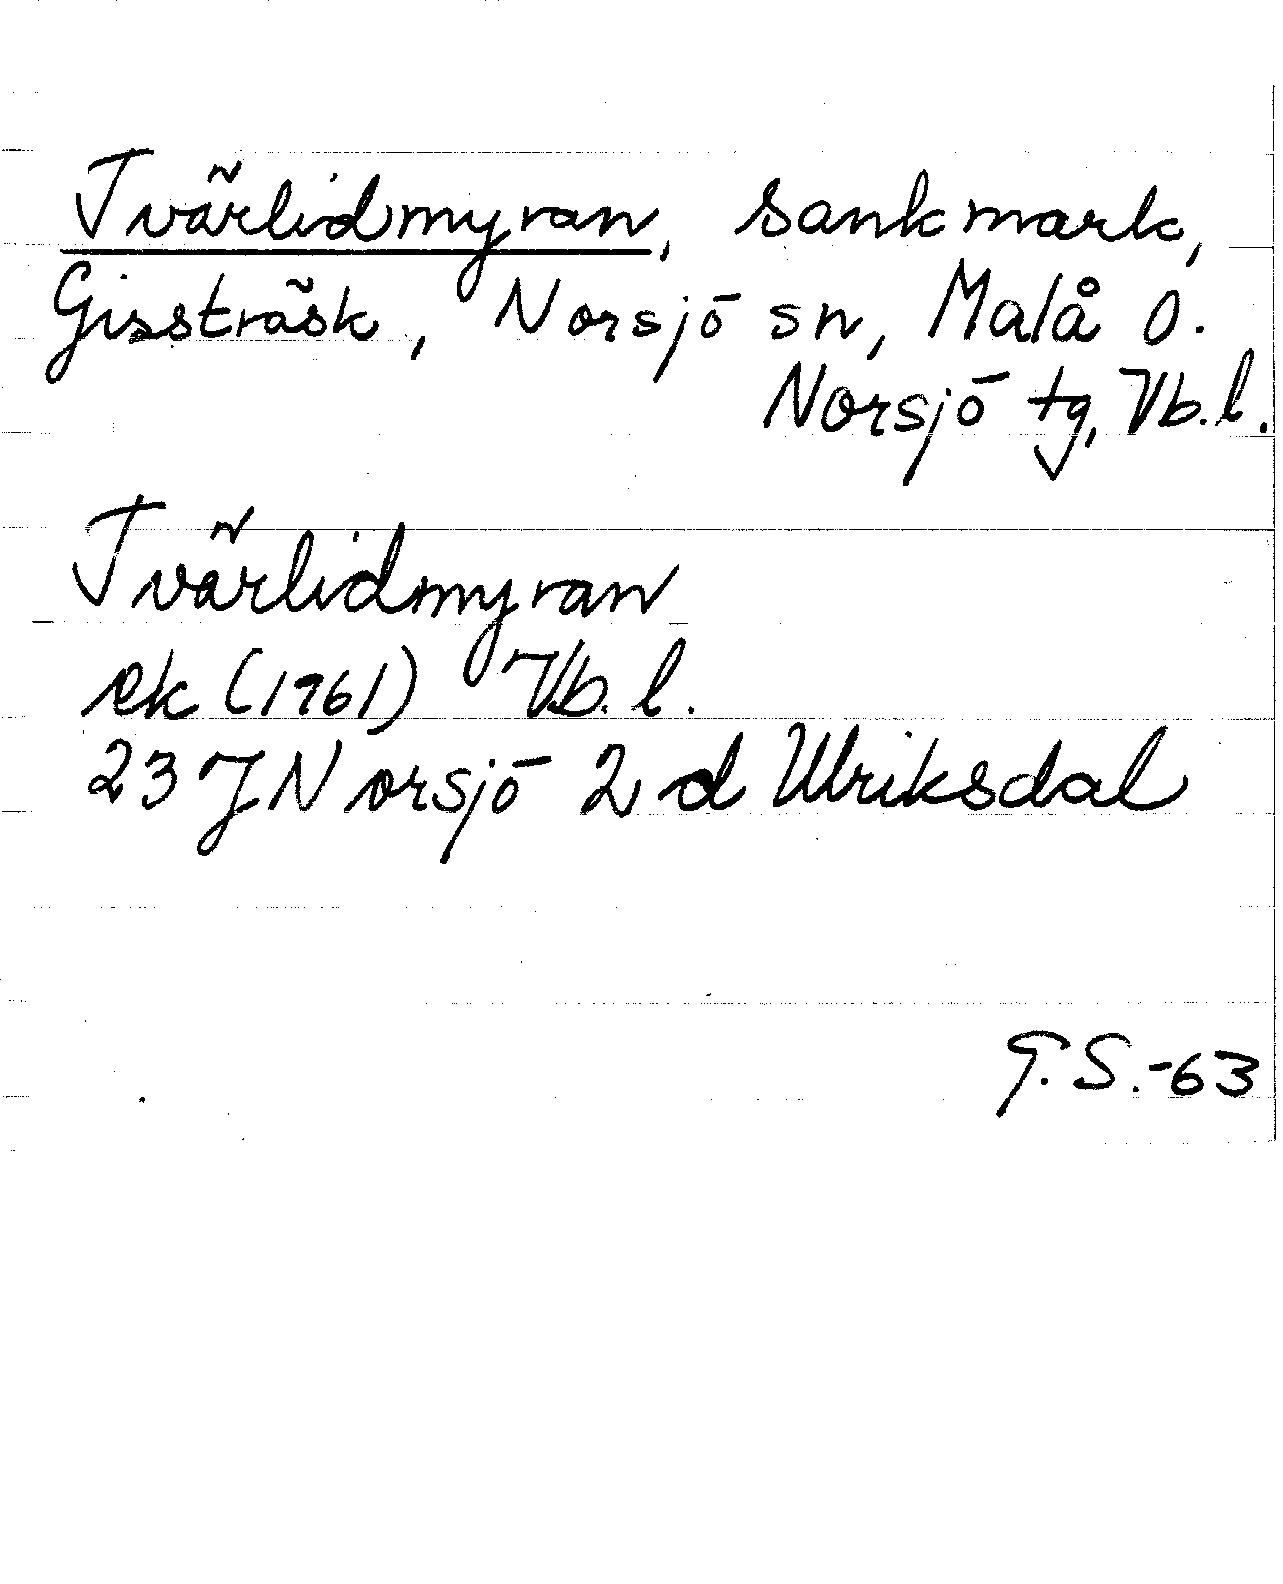 Tvärlidmyran, sankmark,
Gissträsk, Norsjö sn, Malå o.
Norsjö tg, Vb. l.
Tvärlidmyran
ek (1961) Vb. l.
23 J Norsjö 2 d Ulriksdal
G. S. -63